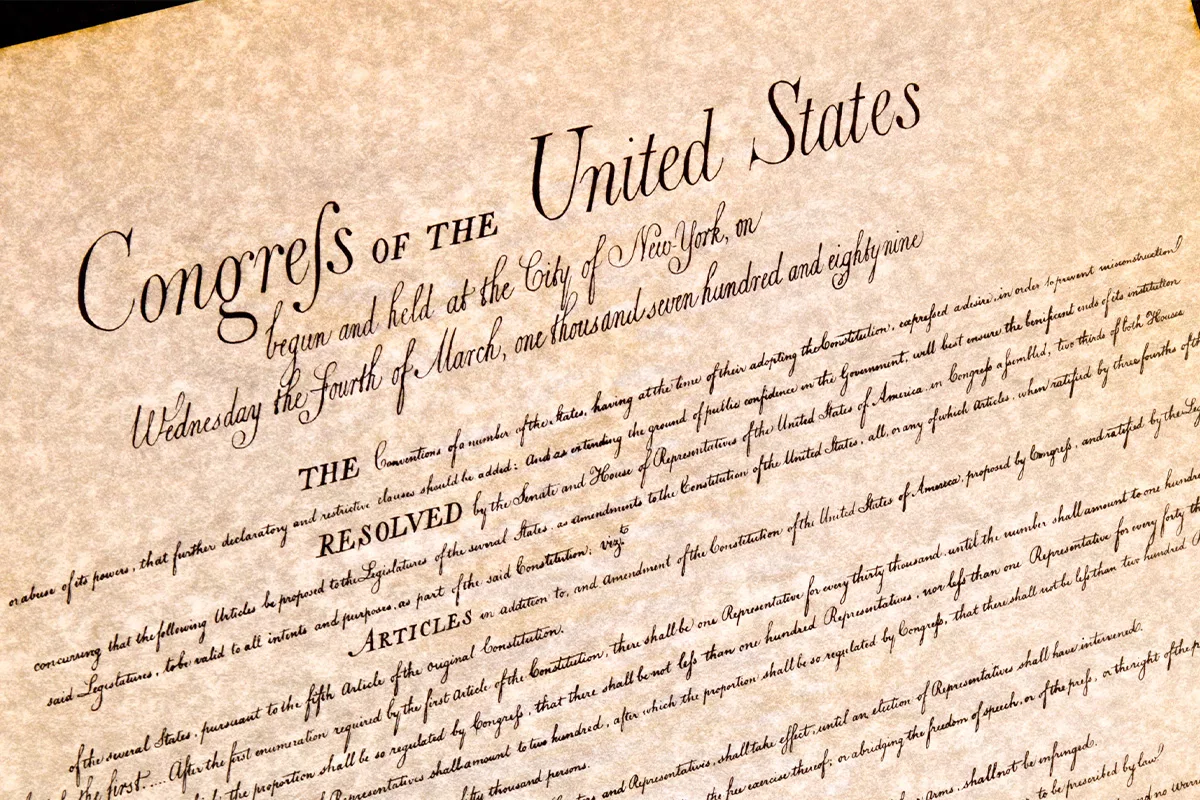 Congreſs OF THE United States
begun and held at the City of New-York, on
Wednesday the Fourth of March, one thousand seven hundred and eighty nine
THE Conventions of a number of the States, having at the time of their adopting the Constitution, expreſsed a desire, in order to prevent misconstruction
or abuse of its powers, that further declaratory and restrictive clauses should be added: And as extending the ground of public confidence in the Government, will best ensure the beneficent ends of its institution
RESOLVED by the Senate and House of Representatives of the United States of America, in Congreſs aſsembled, two thirds of both Houses
concurring that the following Articles be proposed to the Legislatures of the several States, as amendments to the Constitution of the United States, all, or any of which Articles, when ratified by three fourths of the
said Legislatures, to be valid to all intents and purposes, as part of the said Constitution; vizt
ARTICLES in addition to, and Amendment of the Constitution of the United States of America, proposed by Congreſs, and ratified by the Leg
of the several States, pursuant to the fifth Article of the original Constitution.
the first.... After the first enumeration required by the first Article of the Constitution, there shall be one Representative for every thirty thousand, until the number shall amount to one hundred
the proportion shall be so regulated by Congreſs, that there shall be not leſs than one hundred Representatives, nor leſs than one Representative for every forty th
Representatives shall amount to two hundred, after which the proportion shall be so regulated by Congreſs, that there shall not be leſs than two hundred
thousand persons.
and Representatives, shall take effect, until an election of Representatives shall have intervened.
the free exercise thereof; or abridging the freedom of speech, or of the preſs, or the right of the p
Arms, shall not be infringed.
to be prescribed by law.
and no warra